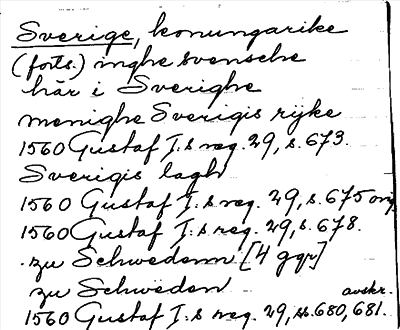 Sverige, konungarike
(forts.) inghe svensche
här i Sverighe
menighe Sverigis rijke
1560 Gustaf I:s reg. 29, s. 673.
Sverigis lagh
1560 Gustaf I:s reg. 29, s. 675 orig
1560 Gustaf I:s reg. 29, s. 678.
zu Schwedenn [4 ggr]
zu Schweden avskr.
1560 Gustaf I:s reg. 29, ss. 680, 681.